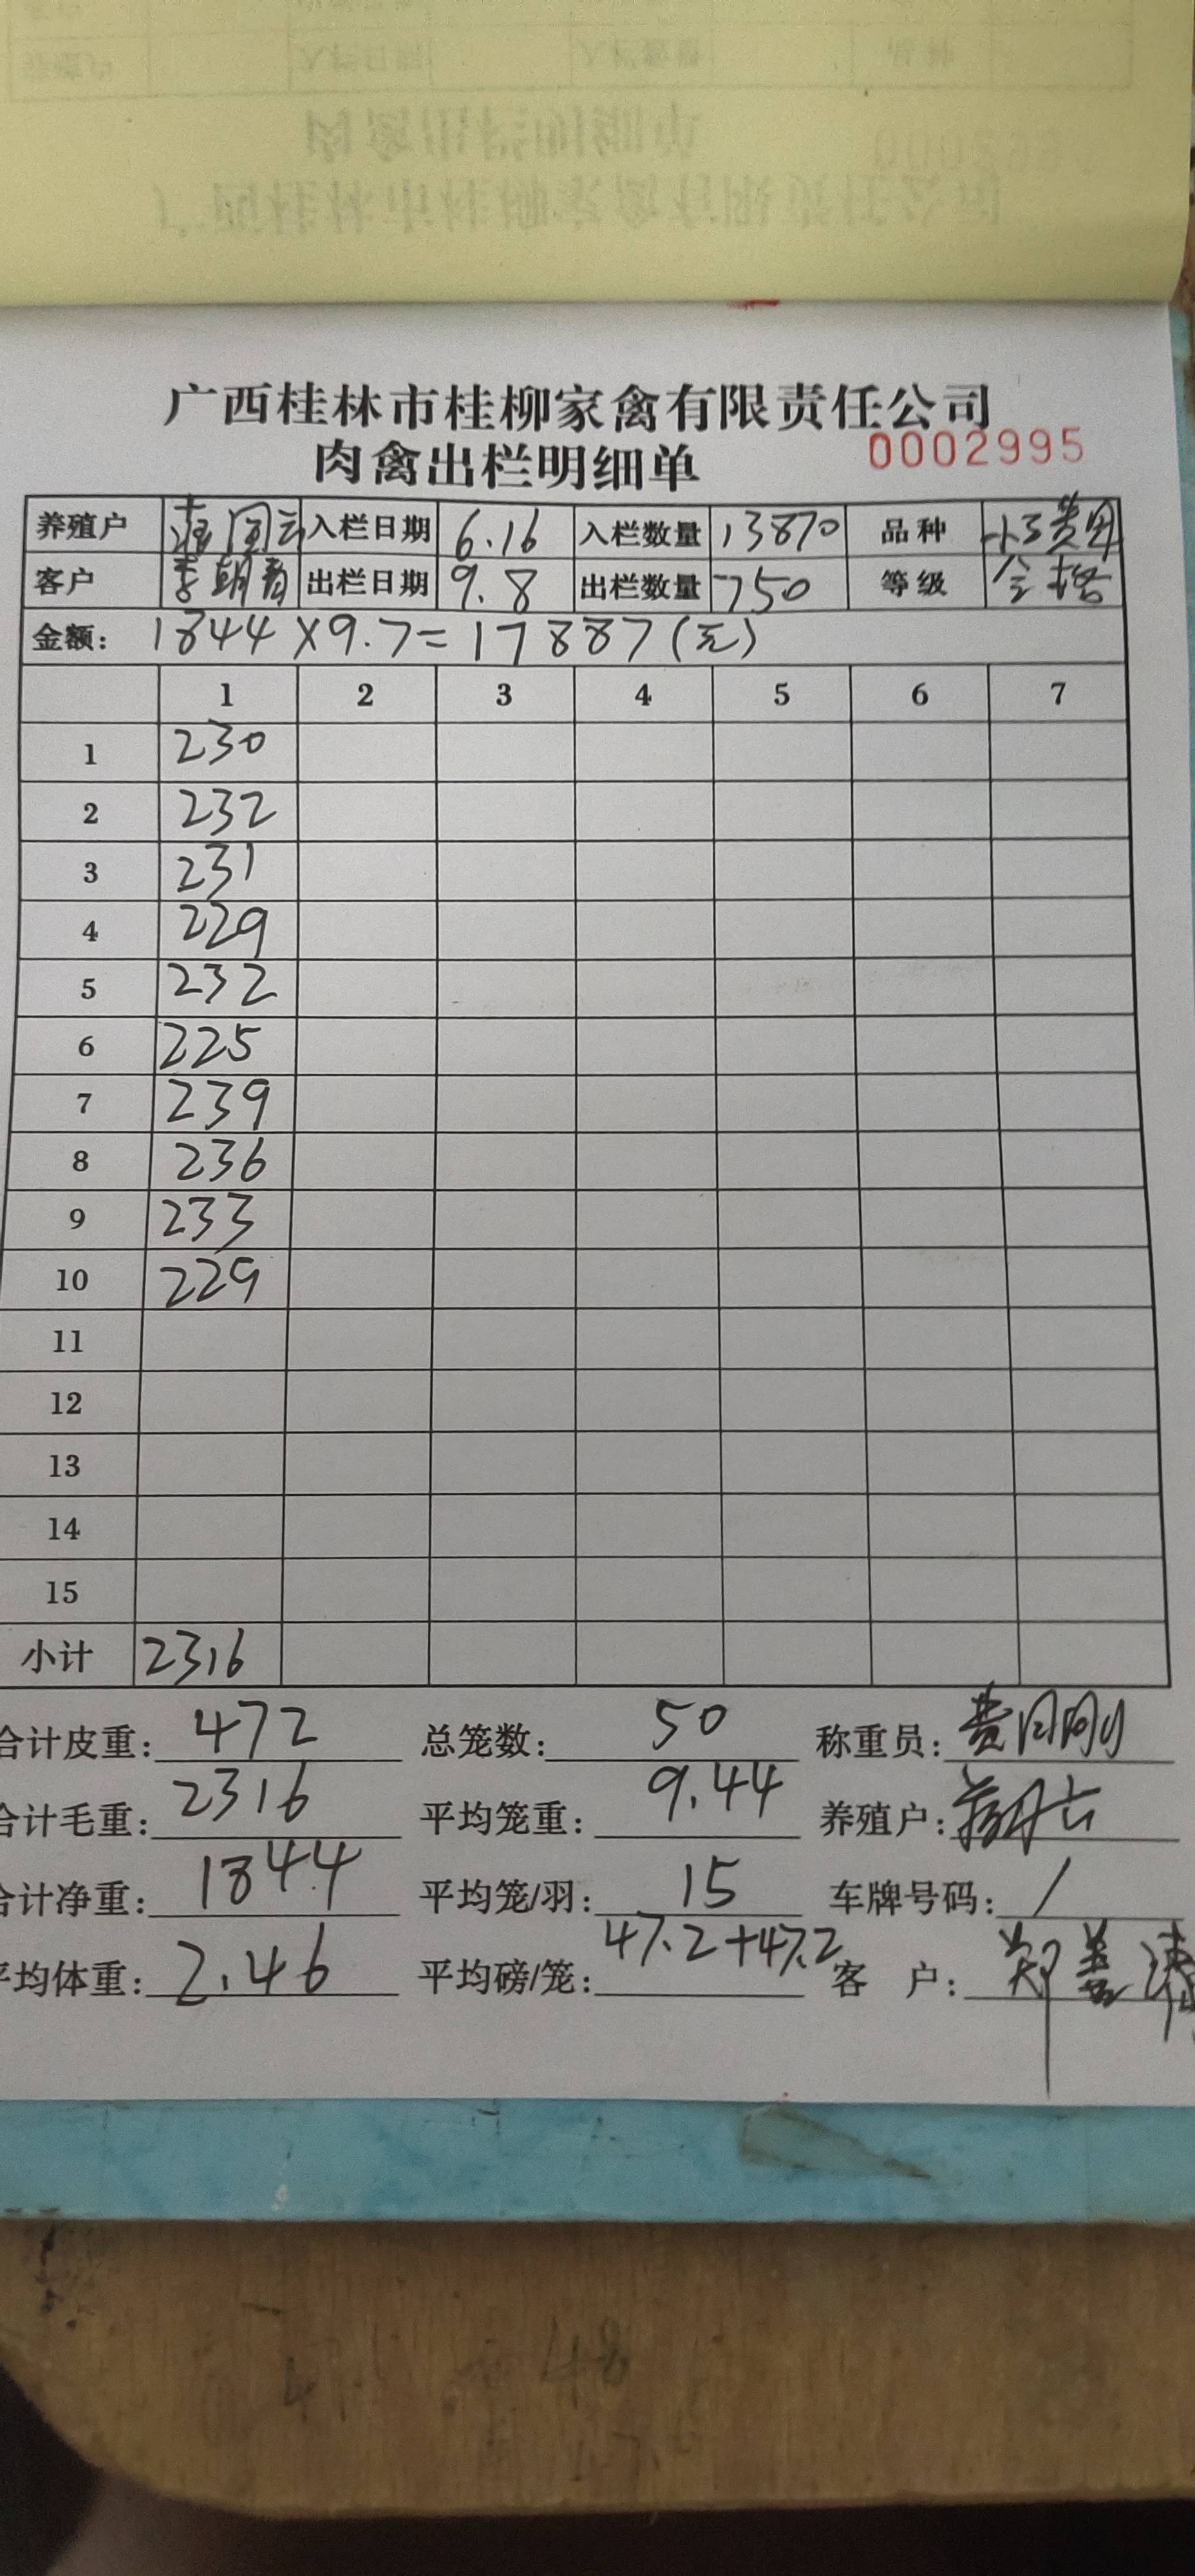 广西桂林市桂柳家禽有限责任公司
肉禽出栏明细单 0002995
养殖户 入栏日期 6.16 入栏数量 13870 品种
客户 李朝 出栏日期 9.8 出栏数量 750 等级 合格
金额: 1844×9.7=17887(元)
1 2 3 4 5 6 7
1 230
2 232
3 231
4 229
5 232
6 225
7 239
8 236
9 233
10 229
11
12
13
14
15
小计 2316
合计皮重: 472 总笼数: 50 称重员:
合计毛重: 2316 平均笼重: 9.44 养殖户:
合计净重: 1844 平均笼/羽: 15 车牌号码: /
平均体重: 2.46 平均磅/笼: 47.2+47.2 客户: 郑善